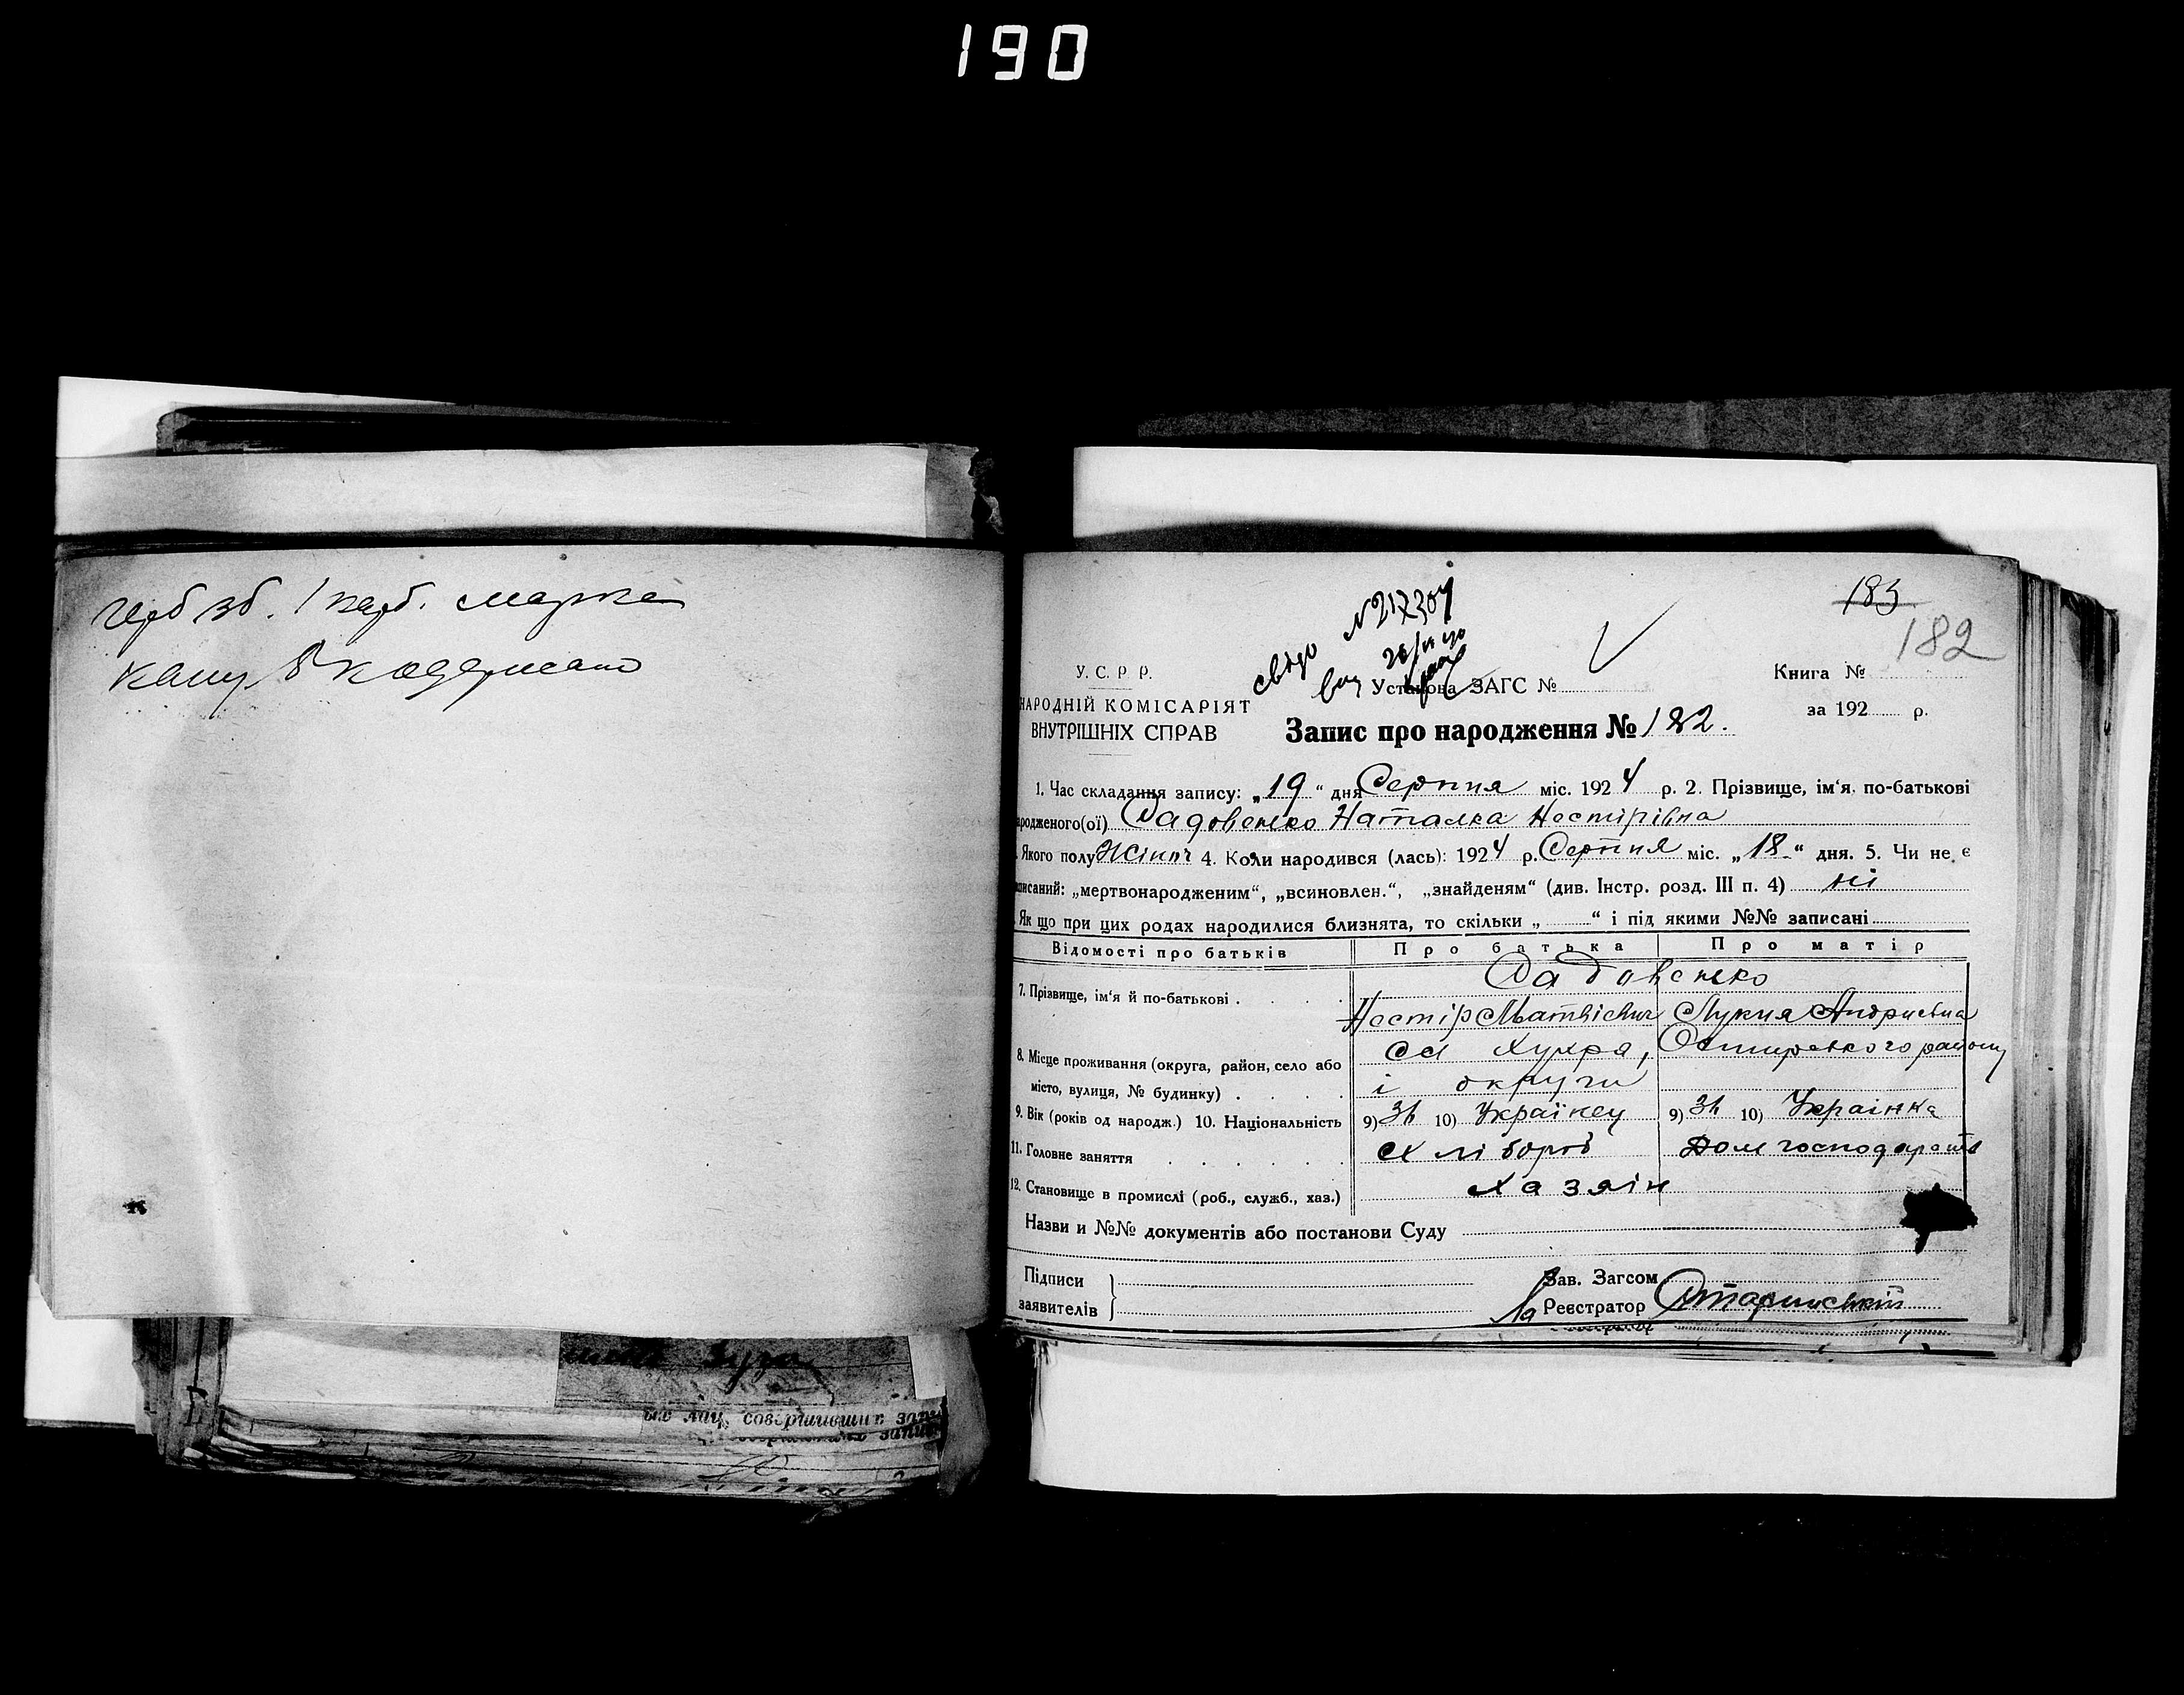 190
герб зб. 1 карб. марка
канц. 8 к одержано
183
182
№217304
свідо
вид
У. С. Р. Р.
НАРОДНІЙ КОМІСАРІЯТ
ВНУТРІШНІХ СПРАВ
Установа ЗАГС №
Книга №
за 192 р.
Запис про народження № 182.
1. Час складання запису: „19“ дня Серпня міс. 1924 р. 2. Прізвище, ім‘я, по-батькові
ародженого(ої) Садовенко Наталка Нестірівна
Якого полу Жіноч 4. Коли народився (лась): 1924 р. Серпня міс. „18“ дня. 5. Чи не є
писаний: „мертвонародженим“, „всиновлен.“, „знайденям“ (див. Інстр. розд. III п. 4) ні
Як що при цих родах народилися близнята, то скільки „ “ і під якими №№ записані
Відомості про батьків Про батька Про матір
7. Прізвище, ім‘я й по-батькові . . . . Садовенко
Нестір Матвієвич Лукия Андриевна
8. Місце проживання (округа, район, село або місто, вулиця, № будинку) . . . .
с. Хухра, Охтирського району
і округи
9. Вік (років од народж.) 10. Національність 9) 36 10) Українец 9) 36 10) Украінка
11. Головне заняття . . . . . . Хлібороб Дом господарств
12. Становище в промислі (роб., служб., хаз.) Хазяін
Назви и №№ документів або постанови Суду
Підписи
заявителів
Зав. Загсом
За Реєстратор
лиц, совершивших запи